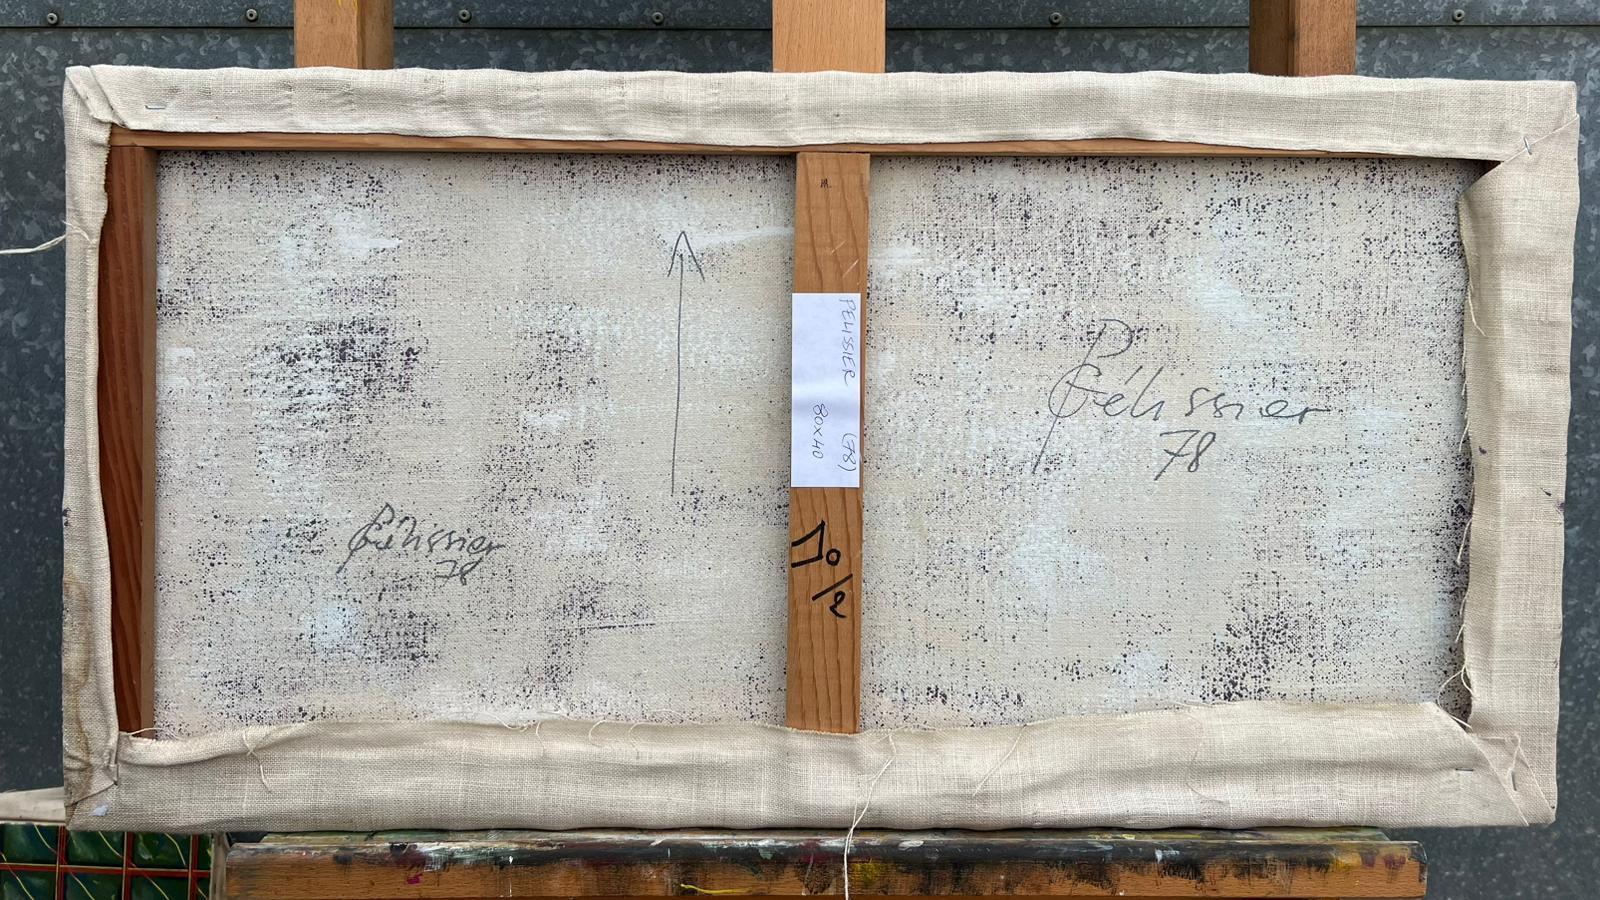 Pélissier
78
PELISSIER (78)
80x40
10/2
G. Pélissier
78